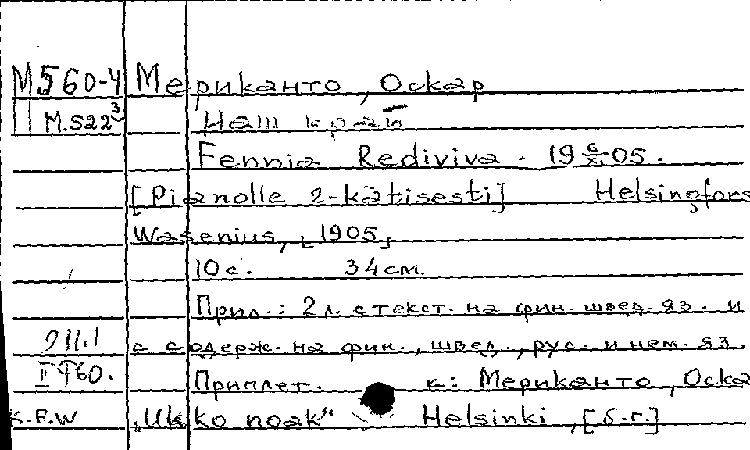 М560-4 Мериканто, Оскар
М.522 Наш край
Fennia Rediviva. 19 6/XI 05.
[Pianolle 2-kätisesti] Helsingfors
Wasenius, [1905]
10 с. 34 см.
Прил.: 2 л. с текст. на фин. швед. яз. и
с содерж. на фин., швед., рус. и нем. яз.
II 960. Приплет. к: Мериканто, Оска
K.F.W „Ukko Noak" Helsinki, [б.г.]